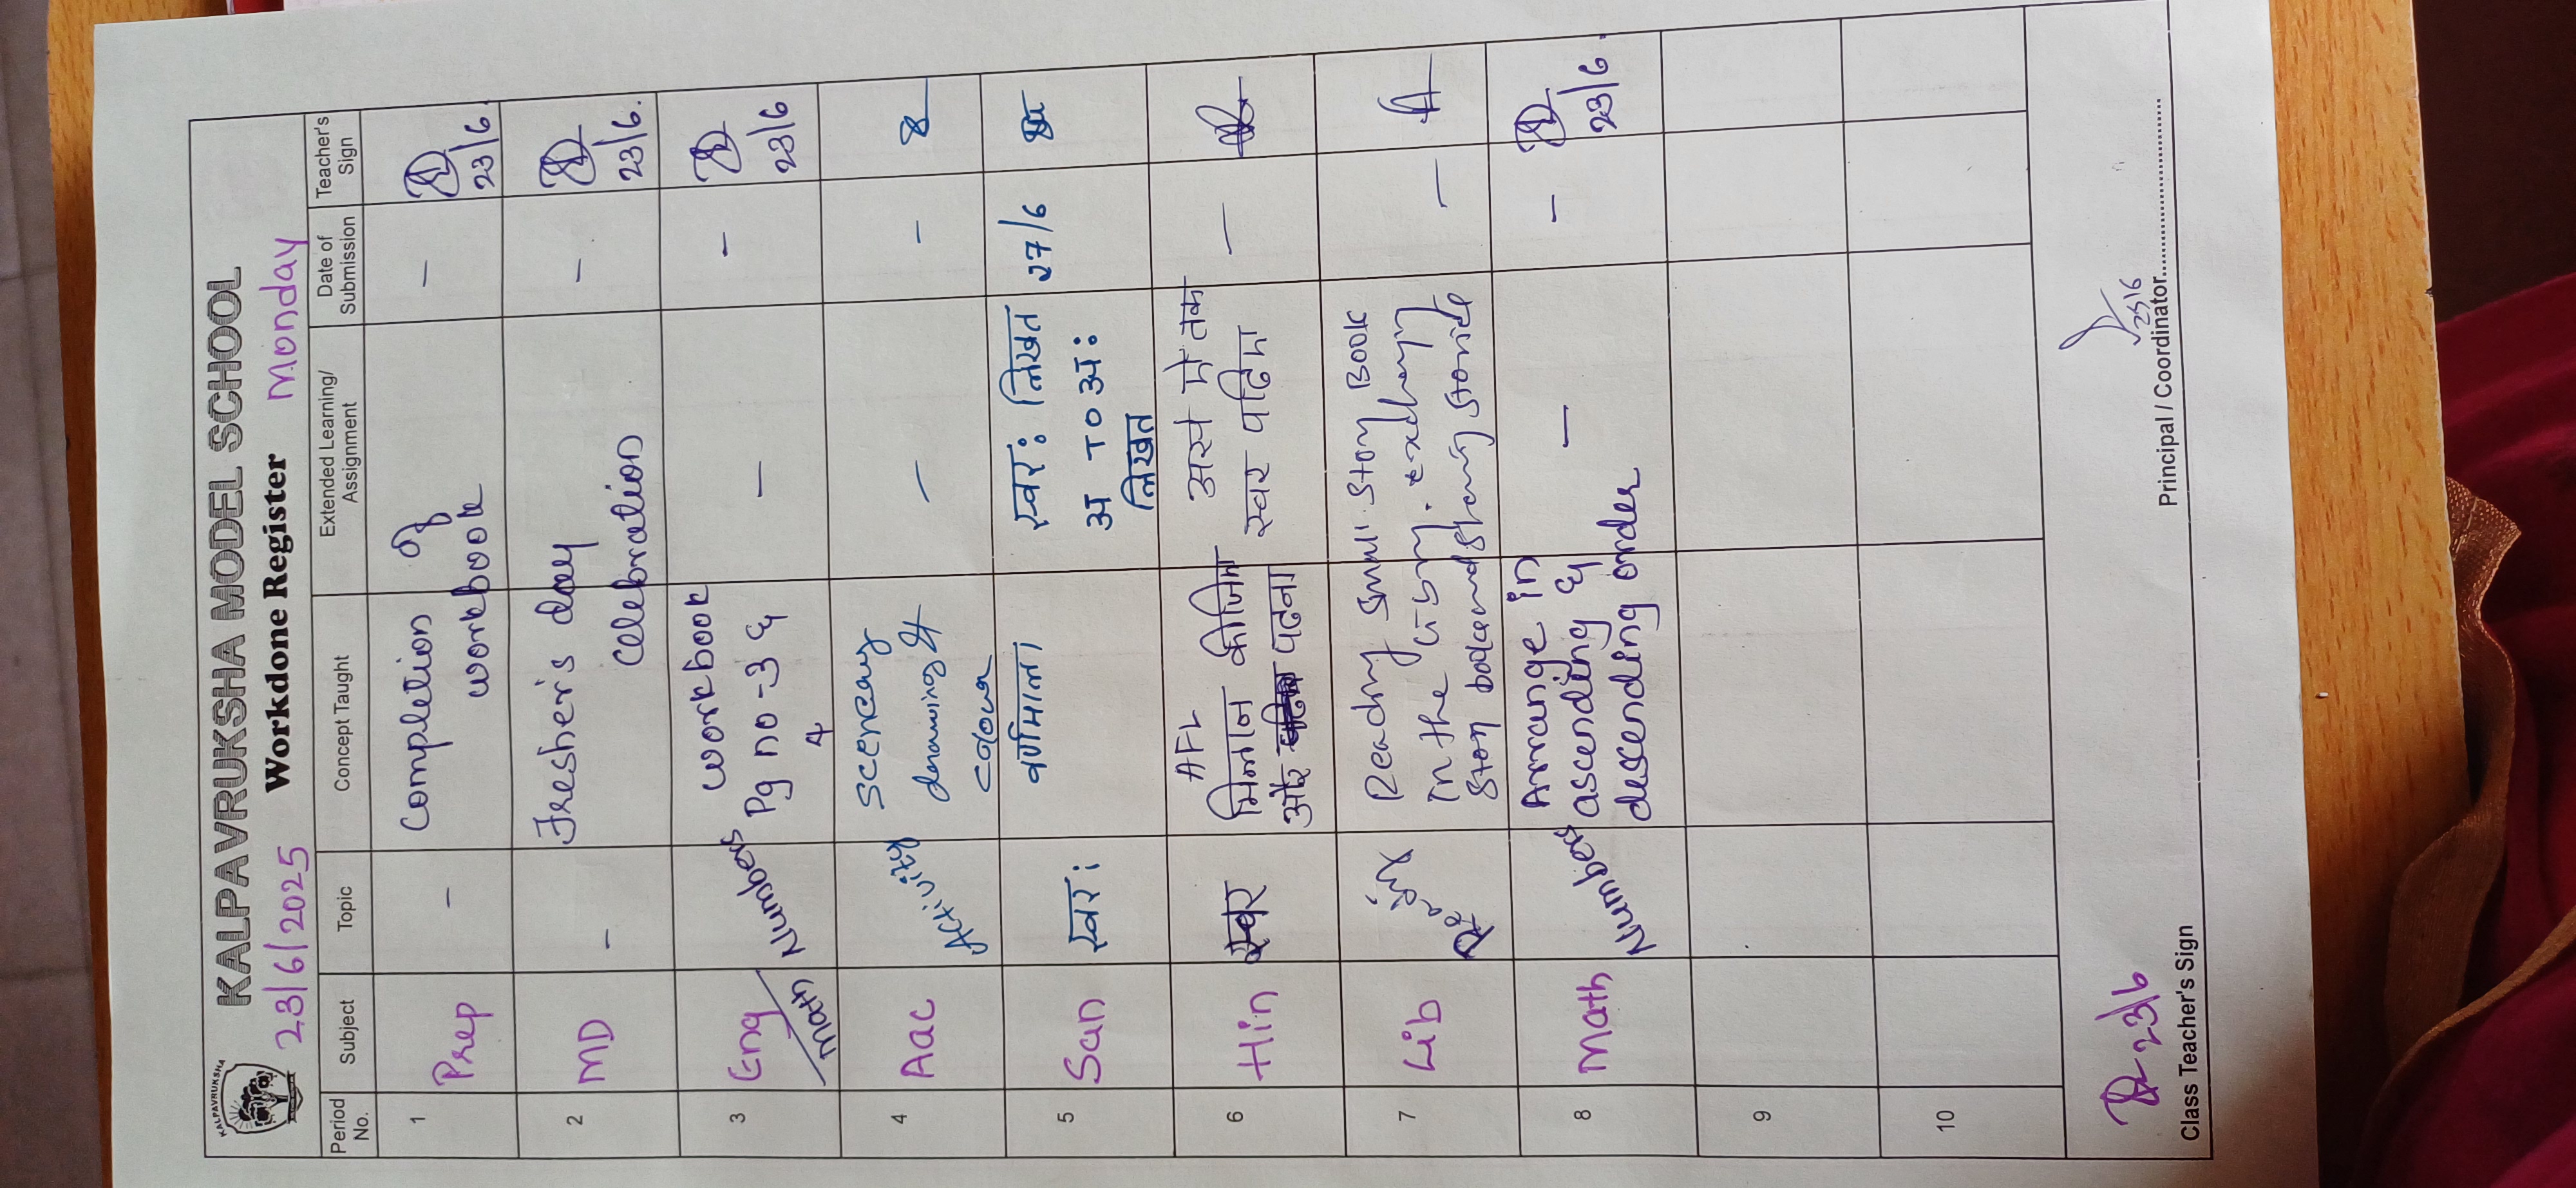 KALPAVRUKSHA
KALPAVRUKSHA MODEL SCHOOL
23/6/2025 Workdone Register Monday
Period No. Subject Topic Concept Taught Extended Learning/ Assignment Date of Submission Teacher's Sign
1 Prep - Completion of - 23/6
workbook
2 MD - Fresher's day - 23/6
Celebration
3 Eng/Math Numbers workbook - - 23/6
Pg no - 3 &
4
4 Aac Activity Scenery - -
drawing &
colour
5 San स्वर: वर्णमाला स्वर: लिखत 27/6
अ TO अ:
लिखत
6 Hin स्वर AFL अ से तक -
मिलान कीजिए स्वर पढ़िए
और पढना
7 Lib Reading small story Book -
In the exchange
story book and sharing stories
8 Math Numbers Arrange in - - 23/6
ascending &
descending order
9
10
23/6
Class Teacher's Sign
23/6
Principal / Coordinator